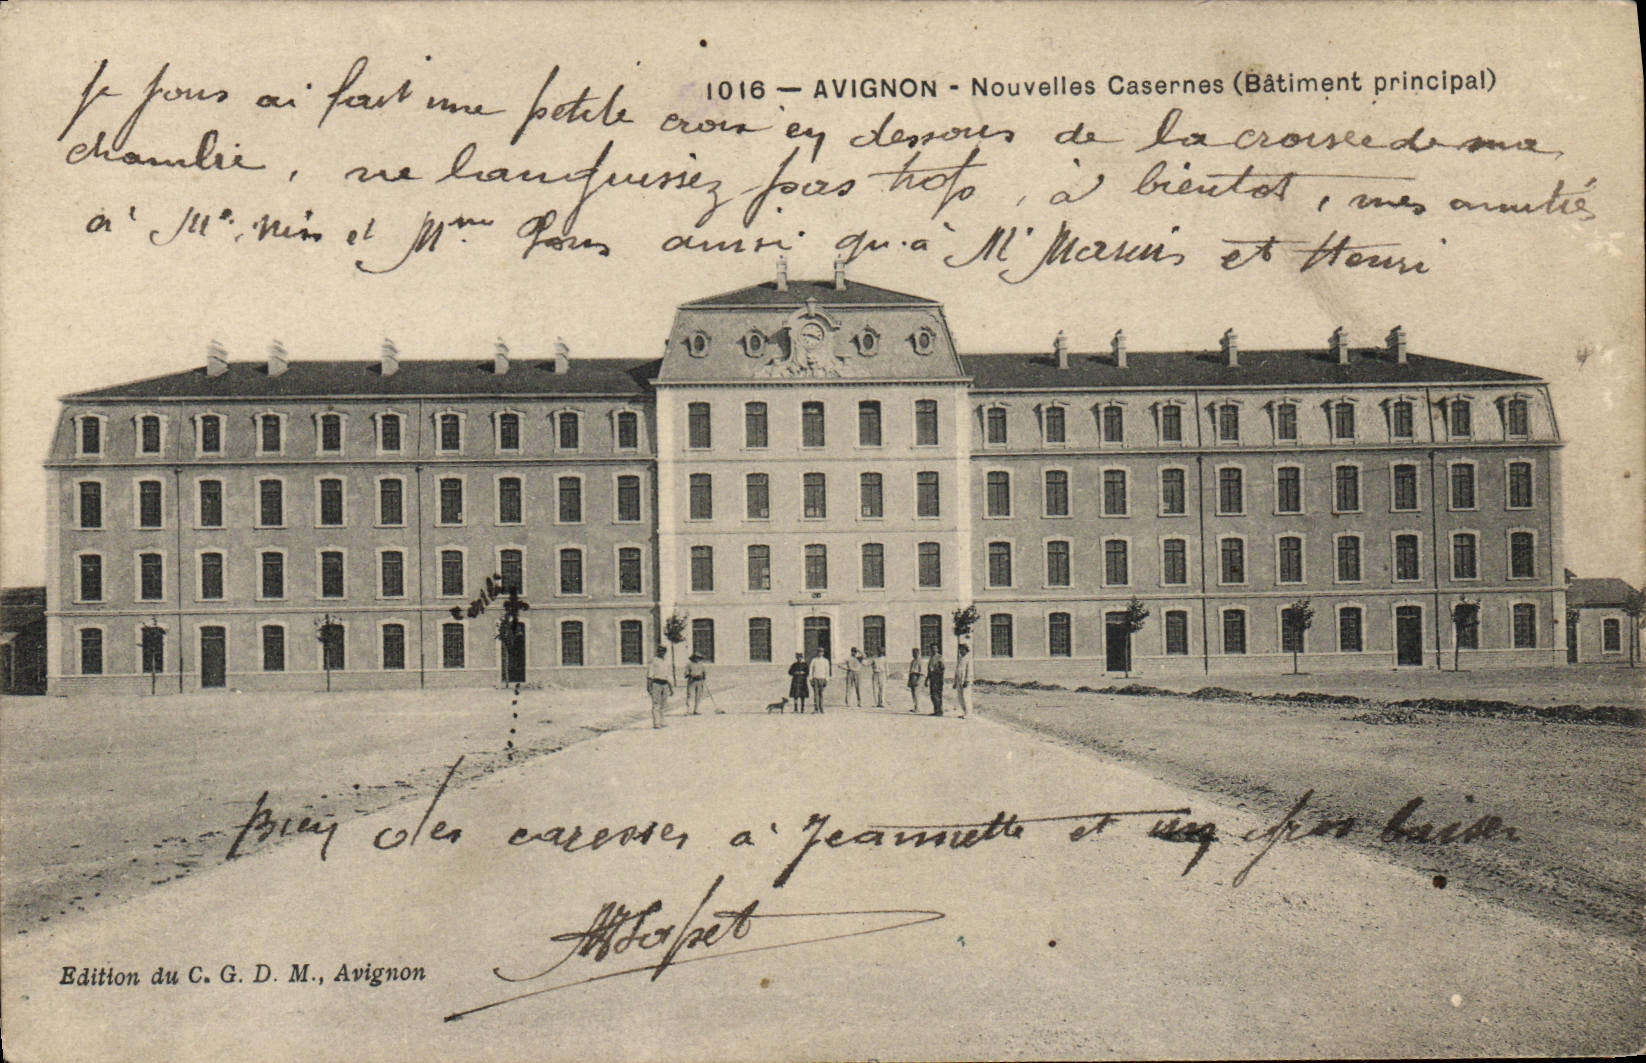 1016 — AVIGNON - Nouvelles Casernes (Bâtiment principal)
Je vous ai fait une petite croix en dessous de la croisée de ma
chambre, ne languissez pas trop, à bientot, mes amitiés
à Mr. et Mme. ainsi qu'à Mr Marius et Henri
Bien des caresses à Jeannette et un gros baiser
Edition du C. G. D. M., Avignon